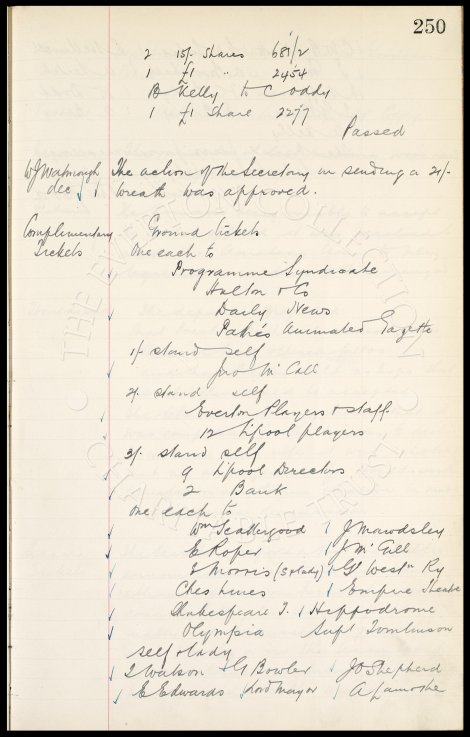 250
2 15/- Shares 681/2
1 £1 " 2454
B Kelly to Coddy
1 £1 Share 2277
Passed
W J Wabrough dec
The action of the Secretary in sending a 21/-
wreath was approved.
Complimentary Tickets
Ground tickets
One each to
Programme Syndicate
Hulton & Co
Daily News
Pathés Animated Gazette
1/- stand self
Jno Mc Call
2/- stand self
Everton Players & staff
12 Lpool players
3/- stand self
9 Lpool Directors
2 Bank
One each to
Wm Scattergood J Mawdsley
E Roper J Mc Gill
J Morris (S & lady) Gt Westn Ry
Ches Lines Empire Theatre
Shakespeare T. Hippodrome
Olympia Supt Tomlinson
self & lady
I Watson G Bowler J O Shepherd
E Edwards Lord Mayor A Lamothe
THE EVERTON COLLECTION
CHARITABLE TRUST